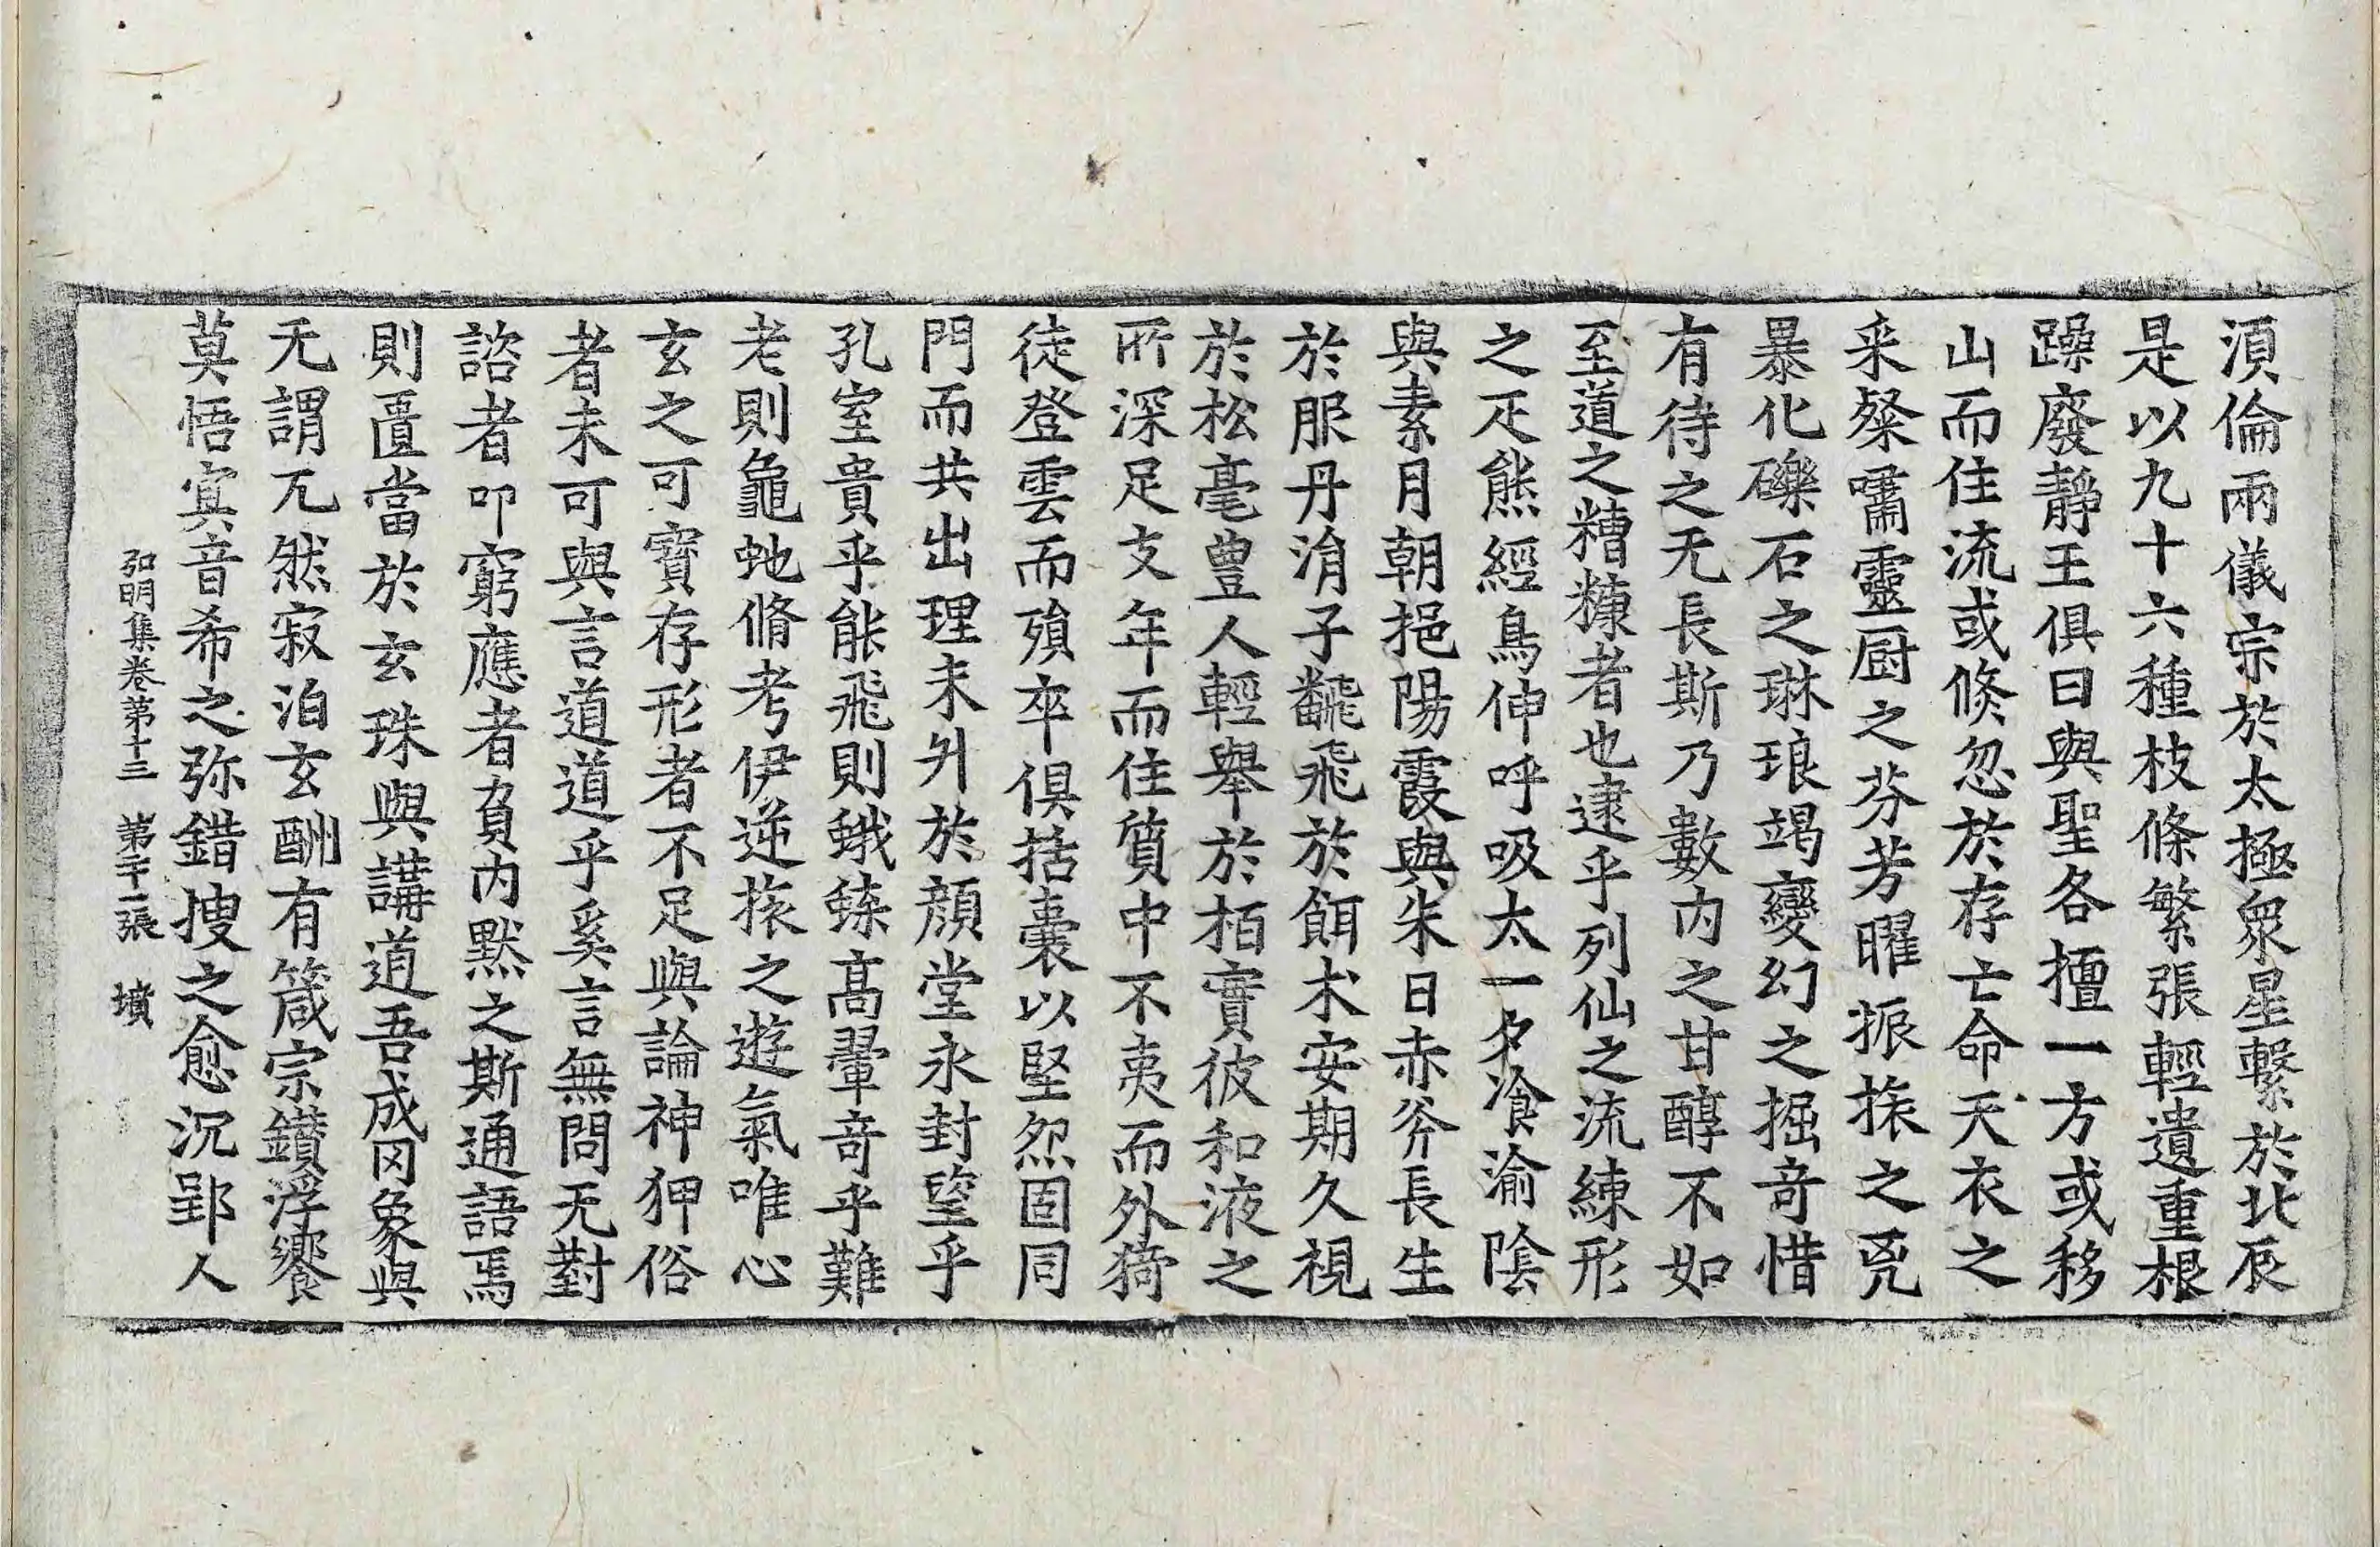 湏倫兩儀宗於太極衆星繋於北辰
是以九十六種枝條繁張輕遺重根
躁廢靜王俱日與聖各擅一方或移
山而住流或倏忽於存亡命天衣之
采粲嚼靈厨之芬芳曜振掖之㒵
暴化礫石之琳琅竭變幻之掘竒惜
有待之无長斯乃數内之甘醇不如
至道之糟糠者也逮乎列仙之流練形
之疋熊經鳥伸呼吸太一夕飡渝陰
與素月朝挹陽霞與朱日赤斧長生
於服丹涓子飜飛於餌术安期久視
於松毫豊人輕舉於栢實彼和液之
所深足支年而住質中不夷而外猗
徒登雲而殞卒俱括囊以堅忽固同
門而共出理未升於顔堂永封望乎
孔室貴乎能飛則蛾蝾高翬竒乎難
老則龜虵脩考伊逆掖之遊氣唯心
玄之可寳存形者不足與論神狎俗
者未可與言道道乎奚言無問无對
諮者叩窮應者負内默之斯通語焉
則匱當於玄珠與講道吾成冈象與
无謂兀然寂泊玄酬有箴宗鑚浮饗
莫悟㝠音希之弥錯搜之愈沉郢人
弘明集卷第十三　第二十一張　墳